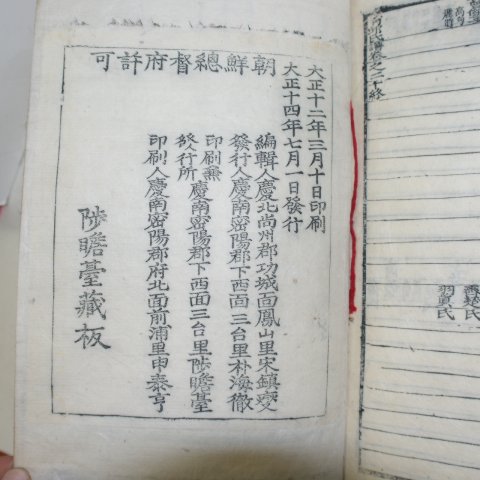 朝鮮總督府許可
大正十二年三月十日印刷
大正十四年七月一日發行
編輯人慶北尚州郡功城面鳳山里宋鎮燮
發行人慶南密陽郡下西面三台里朴海徹
印刷兼發行所慶南密陽郡下西面三台里陟瞻臺
印刷人慶南密陽郡府北面前浦里申泰亨
陟瞻臺藏板